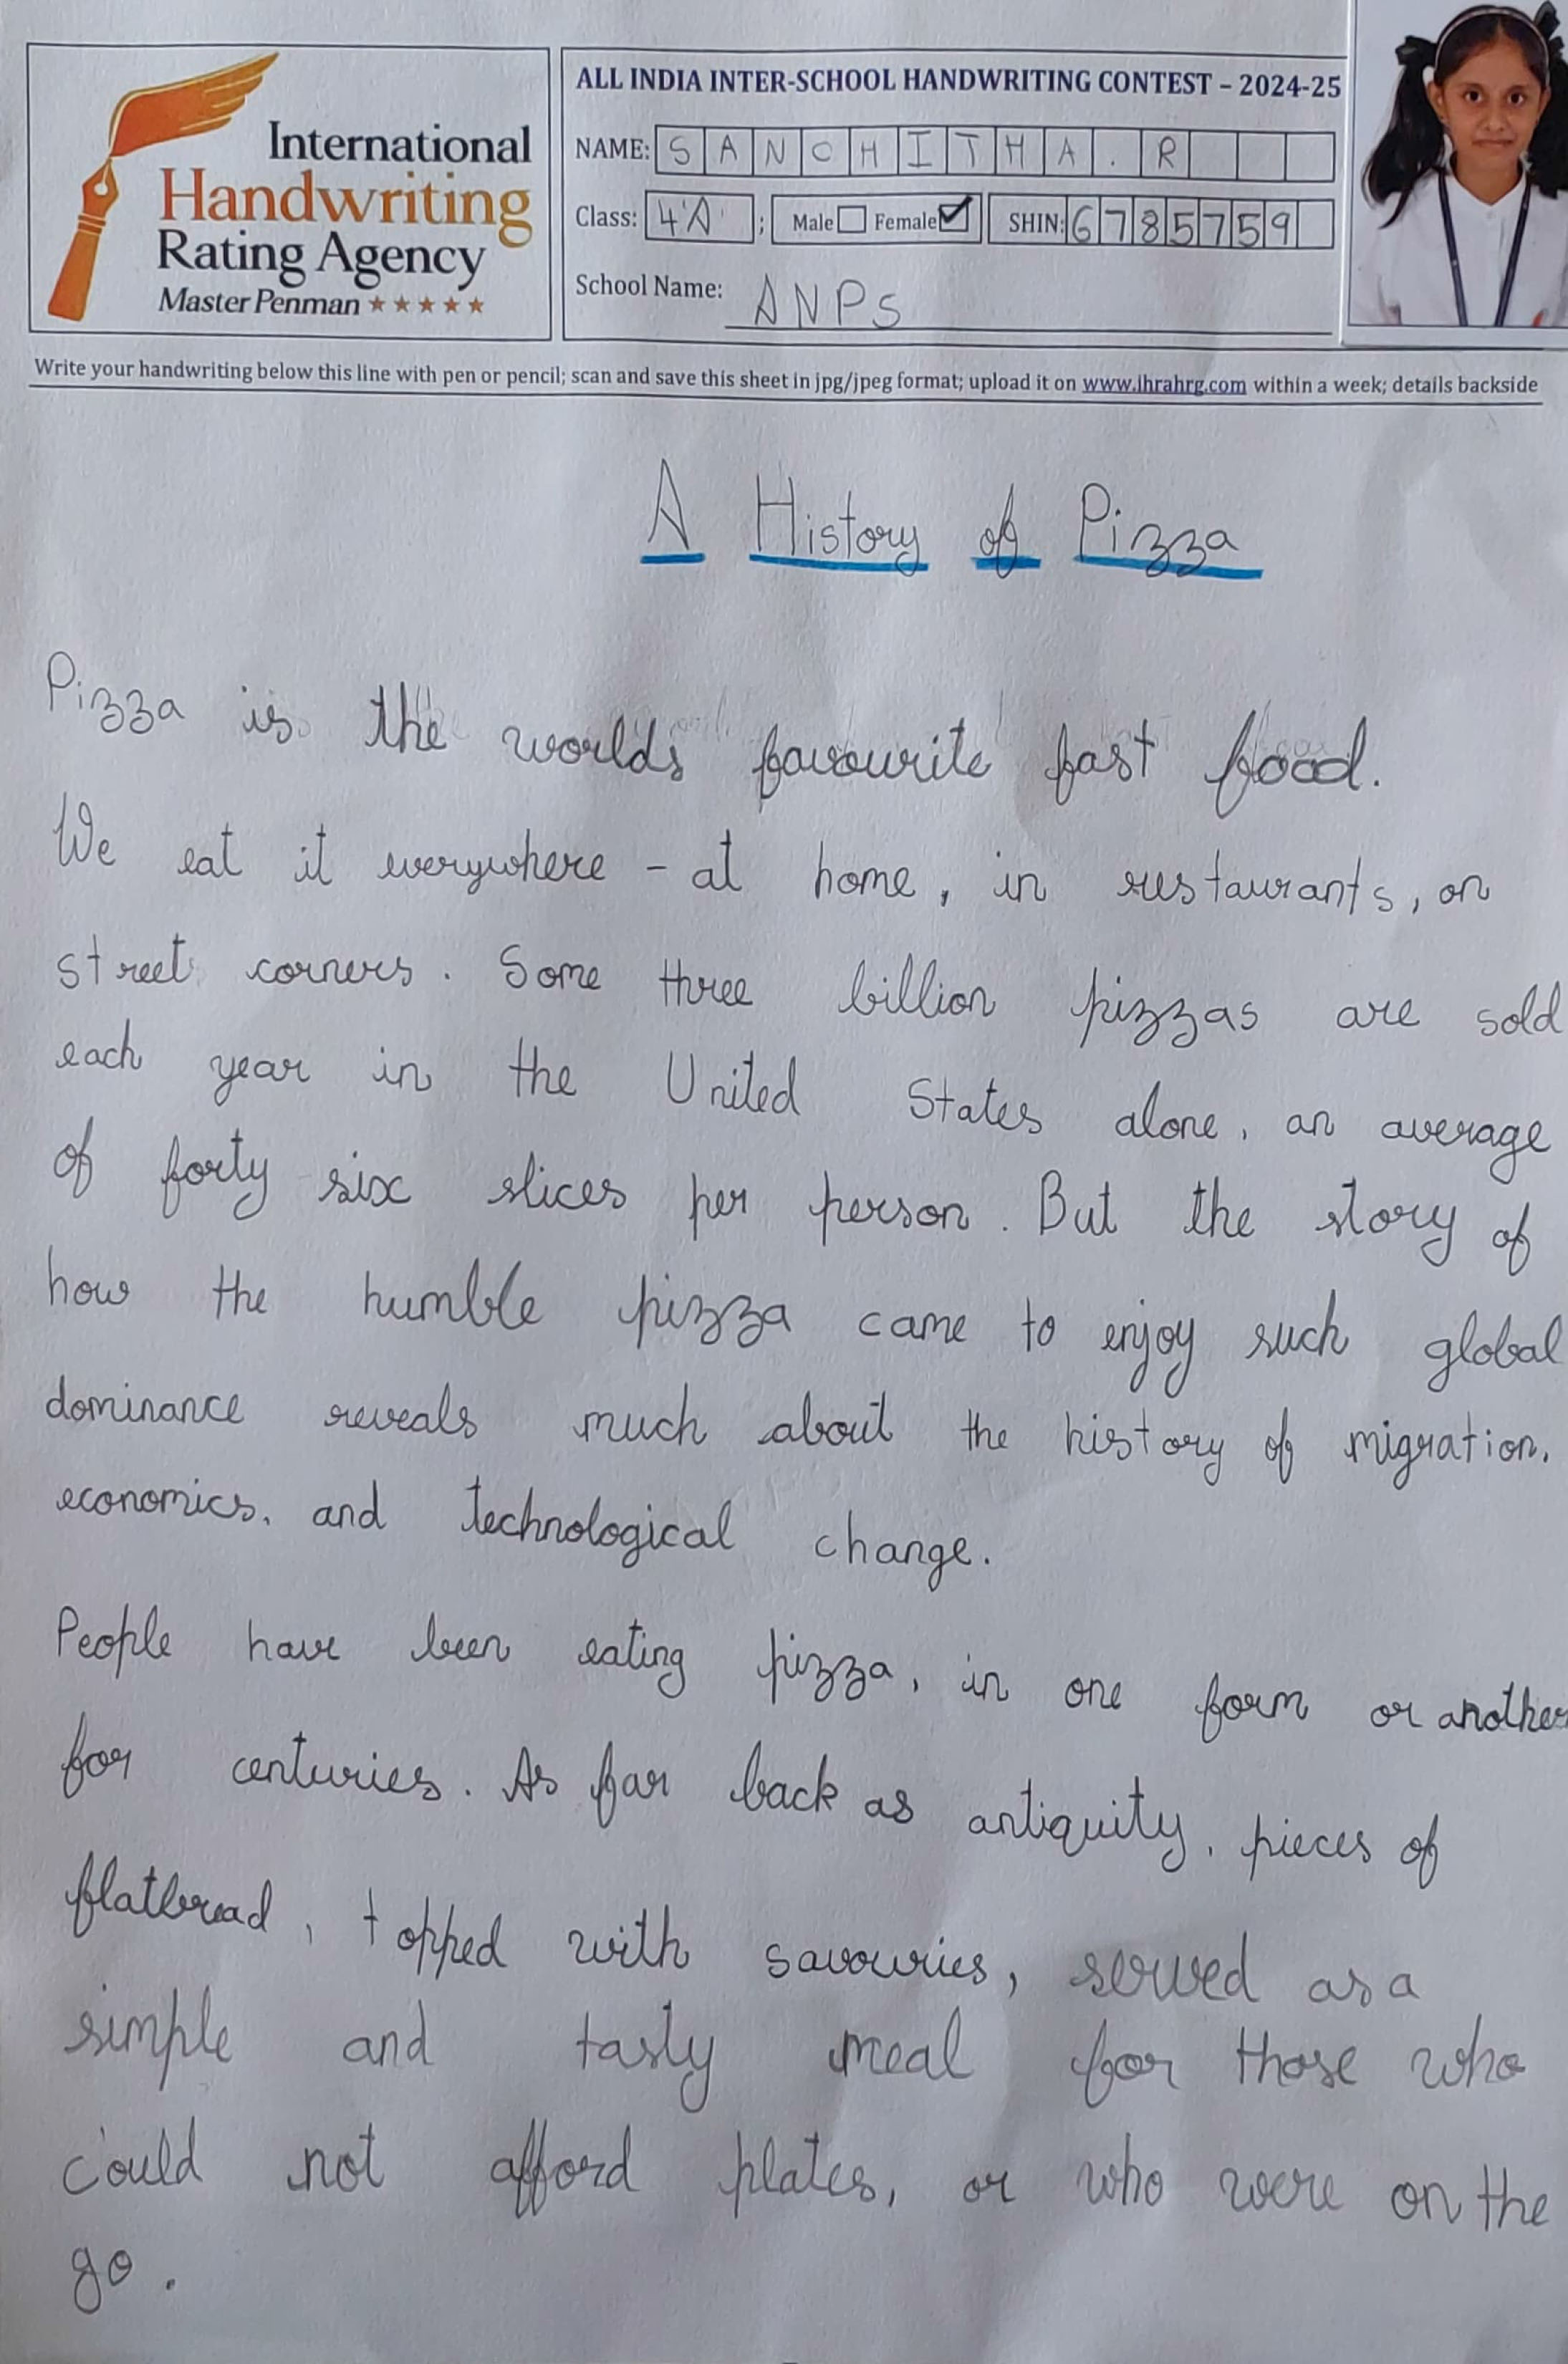 International
Handwriting
Rating Agency
Master Penman
ALL INDIA INTER-SCHOOL HANDWRITING CONTEST – 2024-25
NAME: SANCHITHA.R
Class: 4'A' ; Male Female SHIN: 6785759
School Name: ANPS
Write your handwriting below this line with pen or pencil; scan and save this sheet in jpg/jpeg format; upload it on www.ihrahrg.com within a week; details backside
A History of Pizza
Pizza is the worlds favourite fast food.
We eat it everywhere - at home, in restaurants, on
street corners. Some three billion pizzas are sold
each year in the United States alone, an average
of forty six slices per person. But the story of
how the humble pizza came to enjoy such global
dominance reveals much about the history of migration,
economics, and technological change.
People have been eating pizza, in one form or another
for centuries. As far back as antiquity, pieces of
flatbread, topped with savouries, served as a
simple and tasty meal for those who
could not afford plates, or who were on the
go.